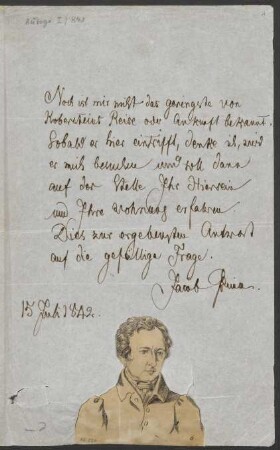 Noch ist mir nicht das geringste von
Kobersteins Reise oder Ankunft bekannt.
Sobald er hier eintrifft, denke ich, wird
er mich besuchen und soll dann
auf der Stelle Ihr Hiersein
und Ihre Wohnung erfahren
Dies zur ergebensten Antwort
auf die gefällige Frage.
Jacob Grimm.
15 Juli 1842.